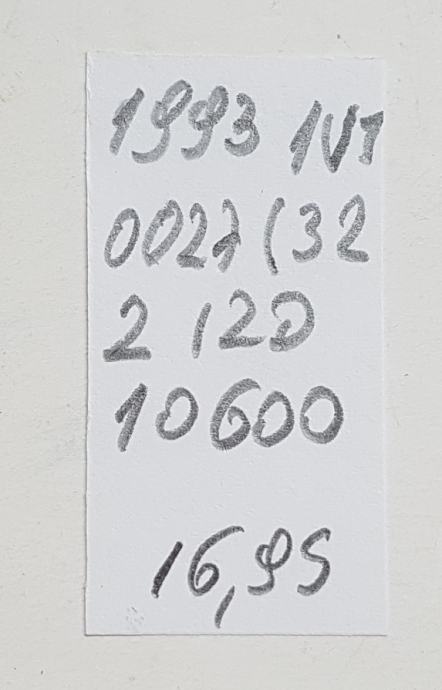 1993 1VT
0021 (32
2 120
10600
16,95